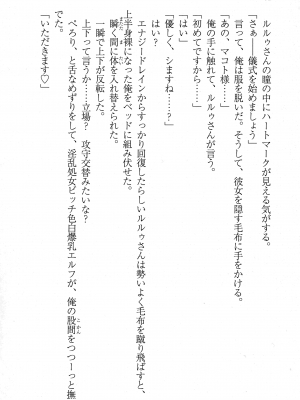 ルルゥさんの瞳の中にハートマークが見える気がする。
「さぁ――儀式を始めましょう」
言って、俺は服を脱いだ。そうして、彼女を隠す毛布に手をかける。
「あの、マコト様……」
俺の手に触れて、ルルゥさんが言う。
「初めてですから……」
「はい」
「優しく、シますね……?」
「はい?」
エナジードレインからすっかり回復したらしいルルゥさんは勢いよく毛布を蹴り飛ばすと、
上半身裸になった俺をベッドに組み伏せた。
瞬く間に体を入れ替えられた。
一瞬で上下が反転した。
上下って言うか……立場? 攻守交替みたいな?
ぺろり、と舌なめずりをして、淫乱処女ビッチ色白爆乳エルフが、俺の股間をつつーっと撫
でた。
「いただきます♡」